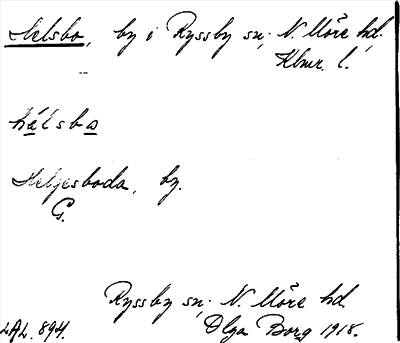 Helsbo, by i Ryssby sn; N. Möre hd.
Klmr. l.
hälsbo
Helgesboda, by.
G.
Ryssby sn; N. Möre hd.
LAL. 894. Olga Borg 1918.